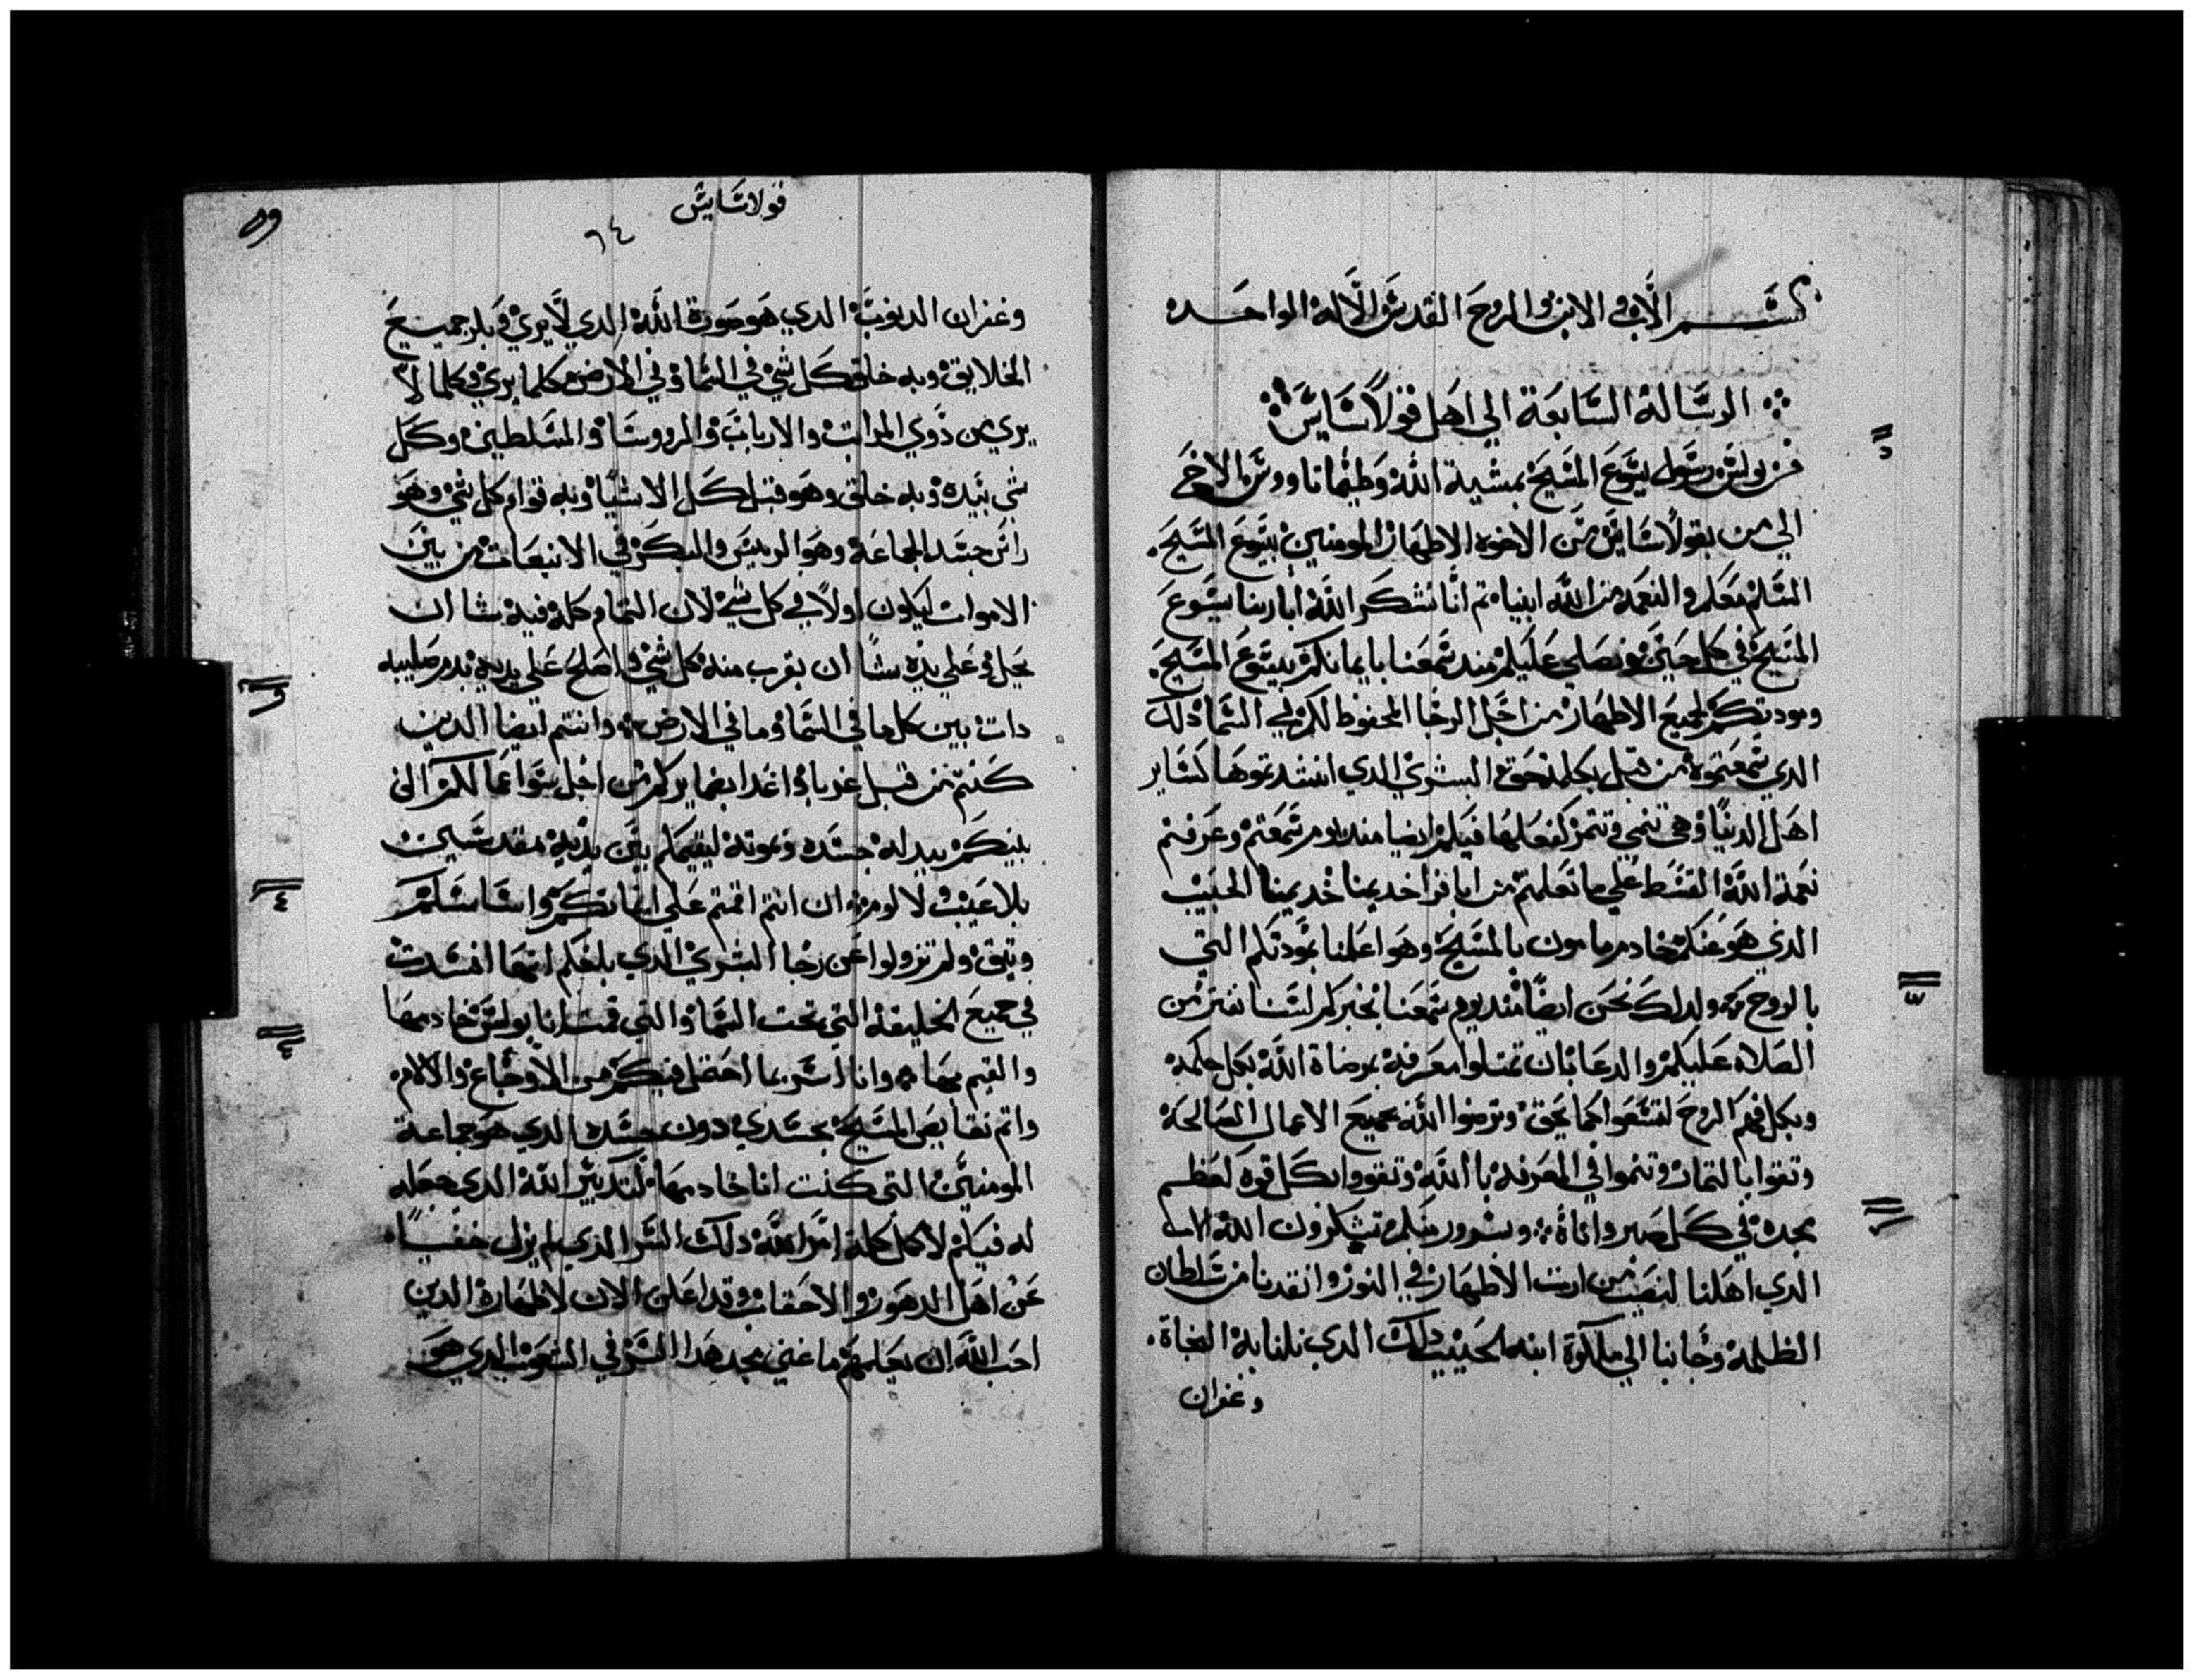 بسم الاب والابن والروح القدس الاله الواحد
الرسالة السابعة الي اهل قولاسايس
من بولس رسول يسوع المسيح بمشية الله وطيماتاووس الاخ
الي من بقولاسايس من الاخوه الاطهار المومنين بيسوع المسيح
السلم معكم والنعمه من الله ابينا ثم انا نشكر الله ابا ربنا يسوع
المسيح في كل حين ونصلي عليكم مند سمعنا بايمانكم بيسوع المسيح
ومودتكم لجميع الاطهار من اجل الرجا المحفوظ لكم في السما دلك
الدي سمعتموه من قبل بكلمة حق البشري الدي انتدتموها كساير
اهل الدنيا وهي تنمي وتتمر كفعلها فيكم ايضا مند يوم سمعتم وعرفتم
نعمة الله القسط علي ما تعلمتم من ابافرا خديمنا الحبيب
الدي هو عنكم خادم مامون بالمسيح وهو اعلنا بمودتكم التي
بالروح ولدلك نحن ايضا مند يوم سمعنا بخبركم لسنا نفتر من
الصلاه عليكم والدعا بان تمتلوا معرفة برضاة الله بكل حكمه
وبكل فهم الروح لتسعوا كما يحق وترضوا الله بجميع الاعمال الصالحه
وتقوا بالتمار وتنموا في المعرفة بالله وتقووا بكل قوه لعظم
مجده في كل صبر واناة وبسرور منكم تشكرون الله الاب
الدي اهلنا لنصيب من ارت الاطهار في النور وانقدنا من سلطان
الظلمة وجا بنا الي ملكوة ابنه الحبيب دلك الدي نلنا به النجاة
وغفران
قولاسايس
٦٤
وغفران الدنوب الدي هو صورة الله الدي لا يري وبكر جميع
الخلايق وبه خلق كل شي في السما وفي الارض كلما يري وكلما لا
يري من ذوي المراتب والارباب والرووسا والمسلطين وكل
شي بيده وبه خلق وهو قبل كل الاشيا وبه قوام كل شي وهو
راس جسد الجماعة وهو الرييس والبكر في الانبعات من بين
الاموات ليكون اولا في كل شي لان التمام كله فيه شا ان
يحل وعلي يده شا ان يقرب منه كل شي واصلح علي يديه بدم صليبه
دات بين كل ما في السما وما في الارض وانتم ايضا الدين
كنتم من قبل غربا واعدا بضمايركم من اجل سوا عمالكم والان
بلا عيب ولا لوم ان انتم اقمتم علي ايمانكم واساسكم
وتيق ولم تزولوا عن رجا البشري الدي بلغكم انها انشدت
في جميع الخليقة التي تحت السما والتي قمت انا بولس خادمها
والقيم بها وانا اسر بما احتمل فيكم من الاوجاع والالام
واتم نقايص المسيح بجسدي دون جسده الدي هو جماعة
المومنين التي كنت انا خادمها لتدبير الله الدي جعله
له فيكم لاكمل كلمة امر الله دلك السر الدي لم يزل خفيا
عن اهل الدهور والاحقاب وقد اعلن الان لاطهاره الدين
احب الله ان يعلمهم ما غني مجد هدا السر في الشعوب الدي هو